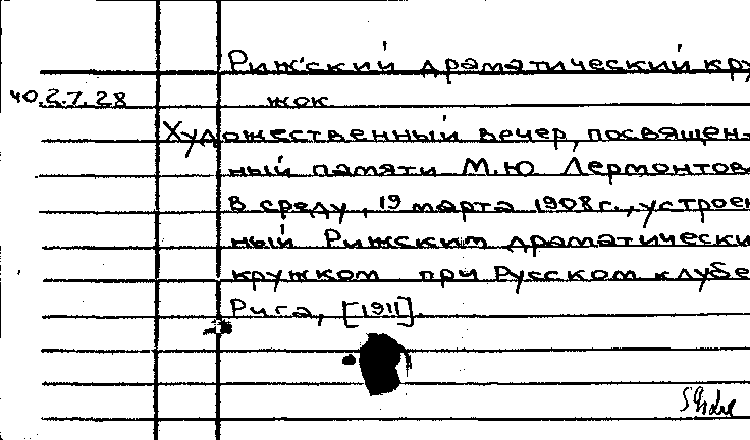 Рижский драматический кру
40.2.7.28 жок
Художественный вечер, посвящен-
ный памяти М.Ю Лермонтов
в среду, 19 марта 1908 г., устроен
ный Рижским драматически
кружком при Русском клубе
Рига, [1911].